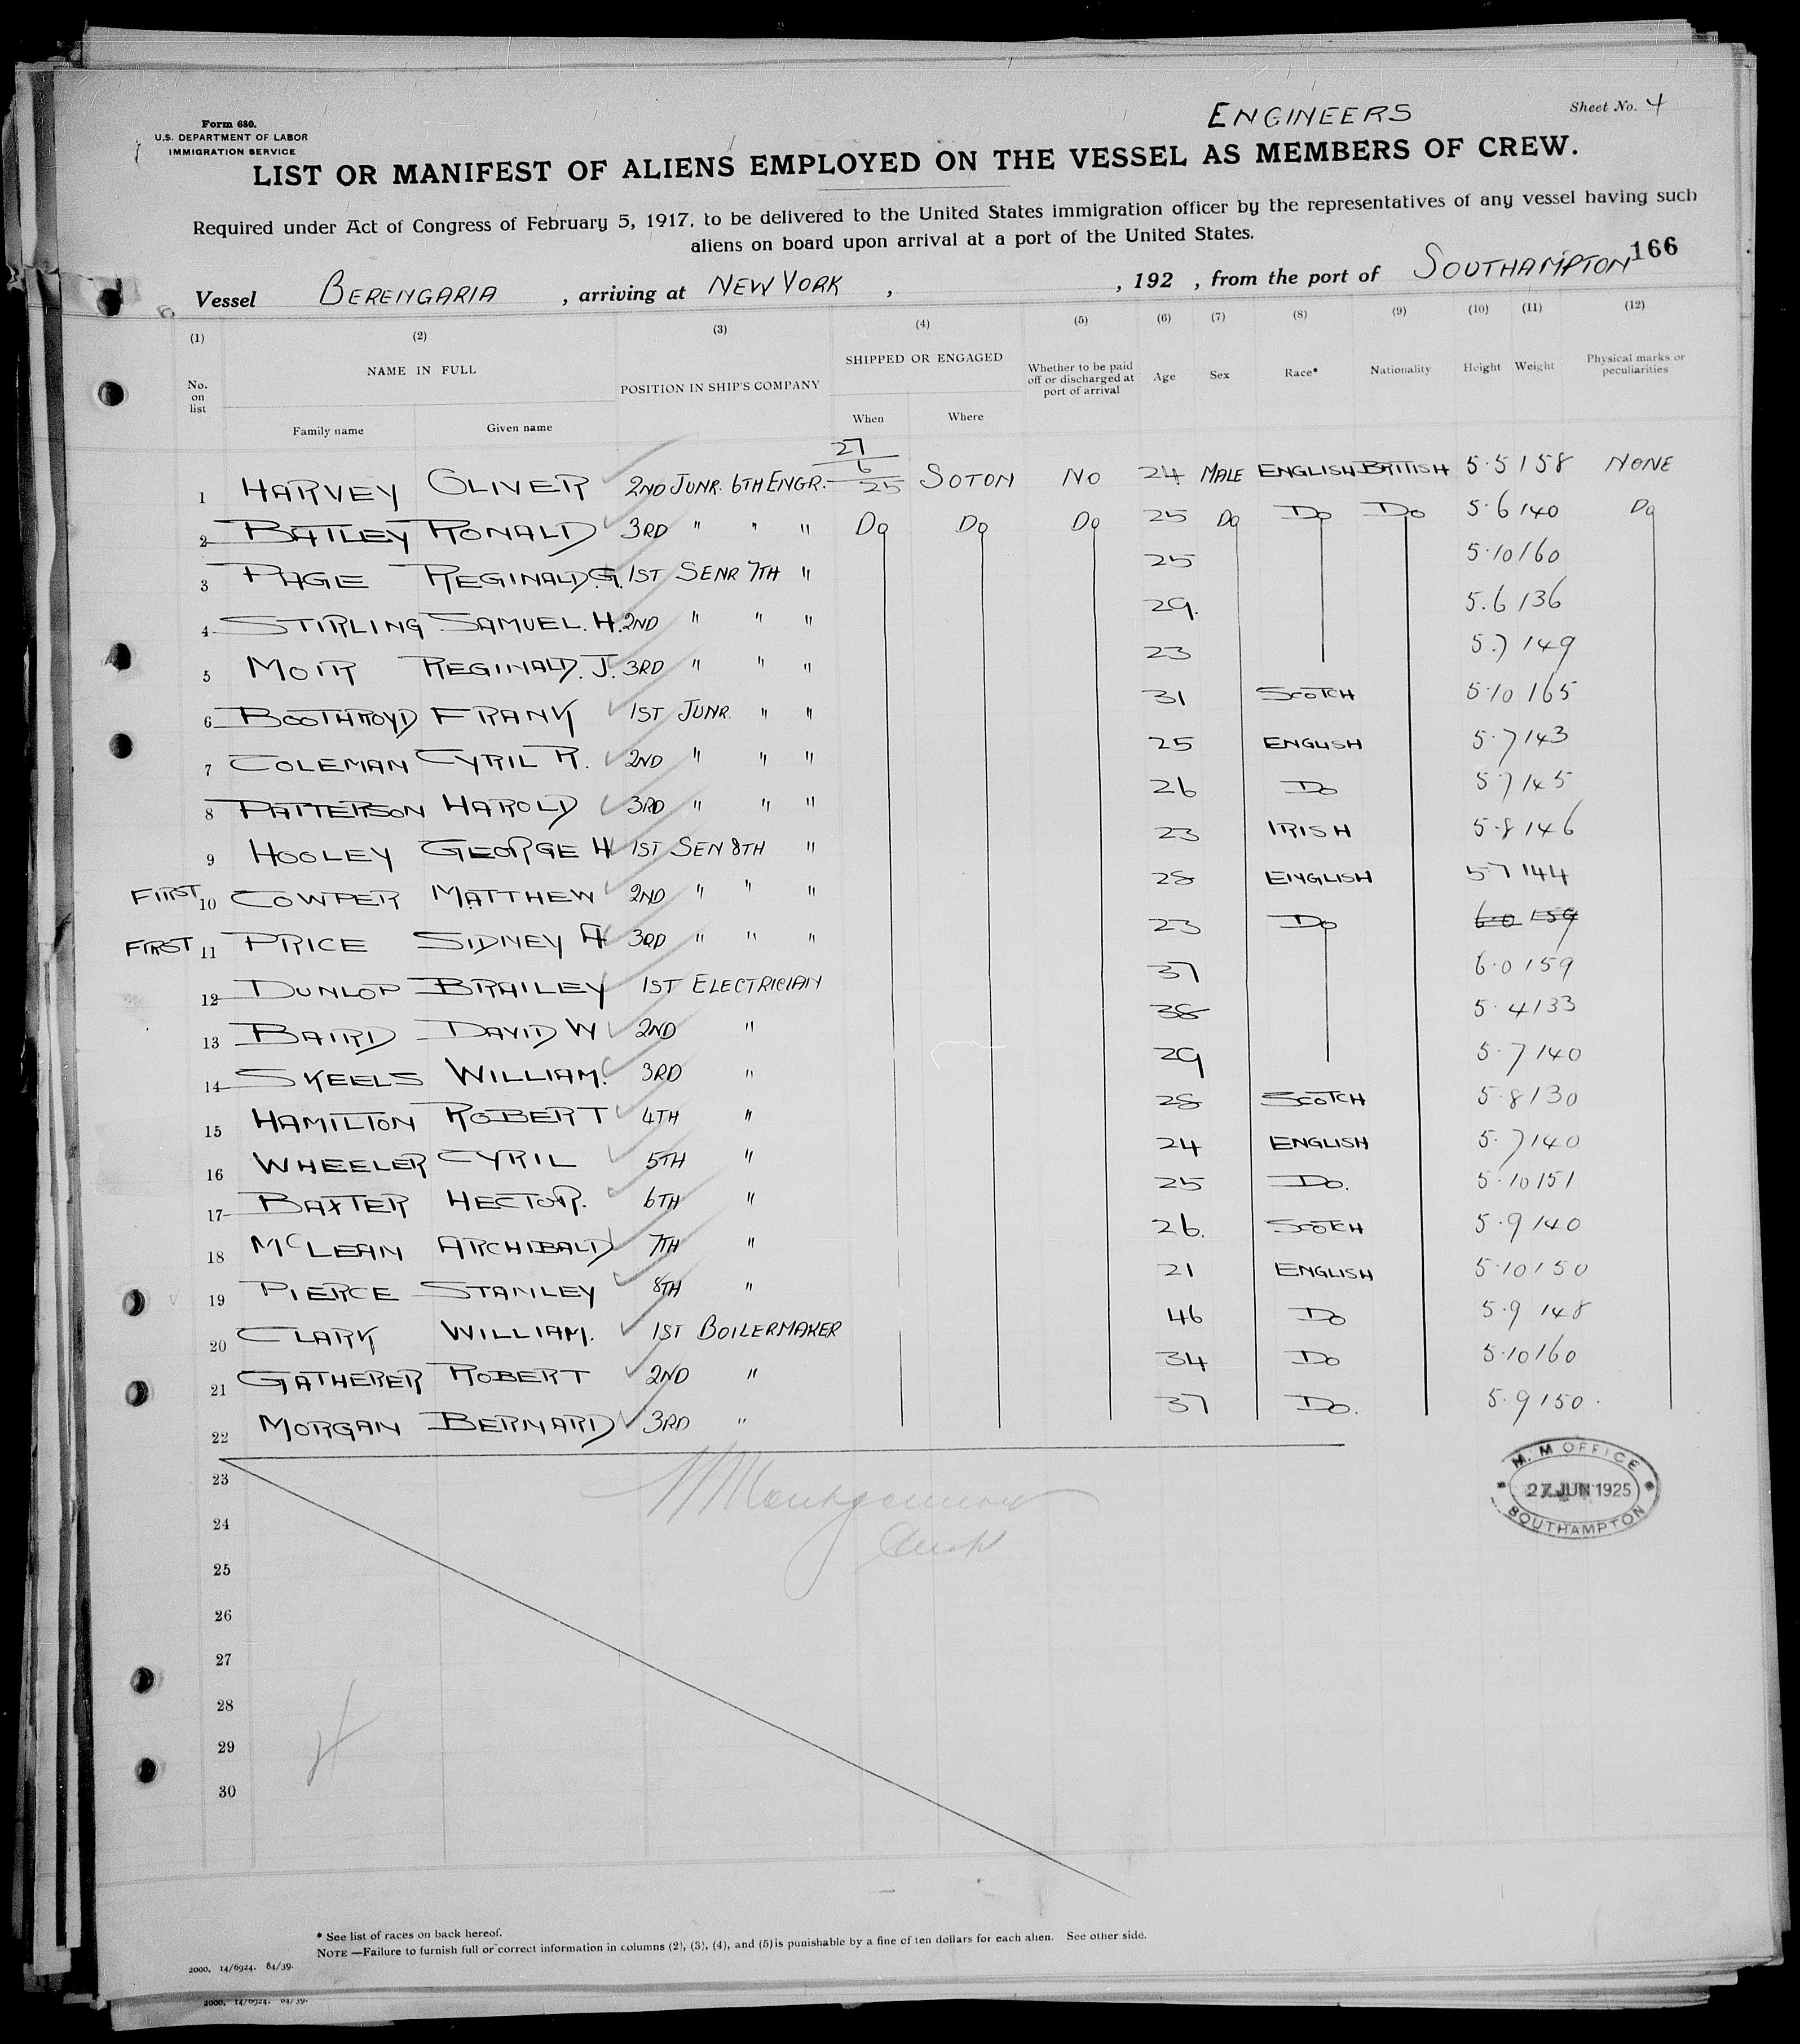 ENGINEERS
Sheet No. 4
Form 680.
U.S. DEPARTMENT OF LABOR
IMMIGRATION SERVICE
LIST OR MANIFEST OF ALIENS EMPLOYED ON THE VESSEL AS MEMBERS OF CREW.
Required under Act of Congress of February 5, 1917, to be delivered to the United States immigration officer by the representatives of any vessel having such
aliens on board upon arrival at a port of the United States.
166
Vessel BERENGARIA, arriving at NEW YORK, , 192 , from the port of SOUTHAMPTON
(1) (2) (3) (4) (5) (6) (7) (8) (9) (10) (11) (12)
No. on list NAME IN FULL POSITION IN SHIP'S COMPANY SHIPPED OR ENGAGED Whether to be paid off or discharged at port of arrival Age Sex Race* Nationality Height Weight Physical marks or peculiarities
Family name Given name When Where
1 HARVEY OLIVER 2ND JUNR. 6TH ENGR. 27/6/25 SOTON NO 24 MALE ENGLISH BRITISH 5.5 158 NONE
2 BATLEY RONALD 3RD " " " Do Do Do 25 Do Do Do 5.6 140 Do
3 PAGE REGINALD.G. 1ST SENR 7TH " 25 5.10 160
4 STIRLING SAMUEL.H. 2ND " " " 29. 5.6 136
5 MOIR REGINALD.J. 3RD " " " 23 5.7 149
6 BOOTHROYD FRANK 1ST JUNR. " " 31 SCOTCH 5.10 165
7 COLEMAN CYRIL R. 2ND " " " 25 ENGLISH 5.7 143
8 PATTERSON HAROLD 3RD " " " 26 Do 5.7 145
9 HOOLEY GEORGE H 1ST SEN 8TH " 23 IRISH 5.8 146
FIRST 10 COWPER MATTHEW 2ND " " " 28 ENGLISH 5 7 144
FIRST 11 PRICE SIDNEY A 3RD " " " 23 Do 6.0 159
12 DUNLOP BRAILEY 1ST ELECTRICIAN 37 6.0 159
13 BAIRD DAVID W 2ND " 38 5.4 133
14 SKEELS WILLIAM. 3RD " 29 5.7 140
15 HAMILTON ROBERT 4TH " 28 SCOTCH 5.8 130
16 WHEELER CYRIL 5TH " 24 ENGLISH 5.7 140
17 BAXTER HECTOR. 6TH " 25 Do. 5.10 151
18 McLEAN ARCHIBALD 7TH " 26. SCOTCH 5.9 140
19 PIERCE STANLEY 8TH " 21 ENGLISH 5.10 150
20 CLARK WILLIAM. 1ST BOILERMAKER 46 Do 5.9 148
21 GATHERER ROBERT 2ND " 34 Do 5.10 160
22 MORGAN BERNARD 3RD " 37 Do. 5.9 150.
23
24
25
26
27
28
29
30
M. M OFFICE
27 JUN 1925
SOUTHAMPTON
* See list of races on back hereof.
NOTE —Failure to furnish full or correct information in columns (2), (3), (4), and (5) is punishable by a fine of ten dollars for each alien. See other side.
2000. 14/6924. 84/39.
2000. 14/6924. 84/39.